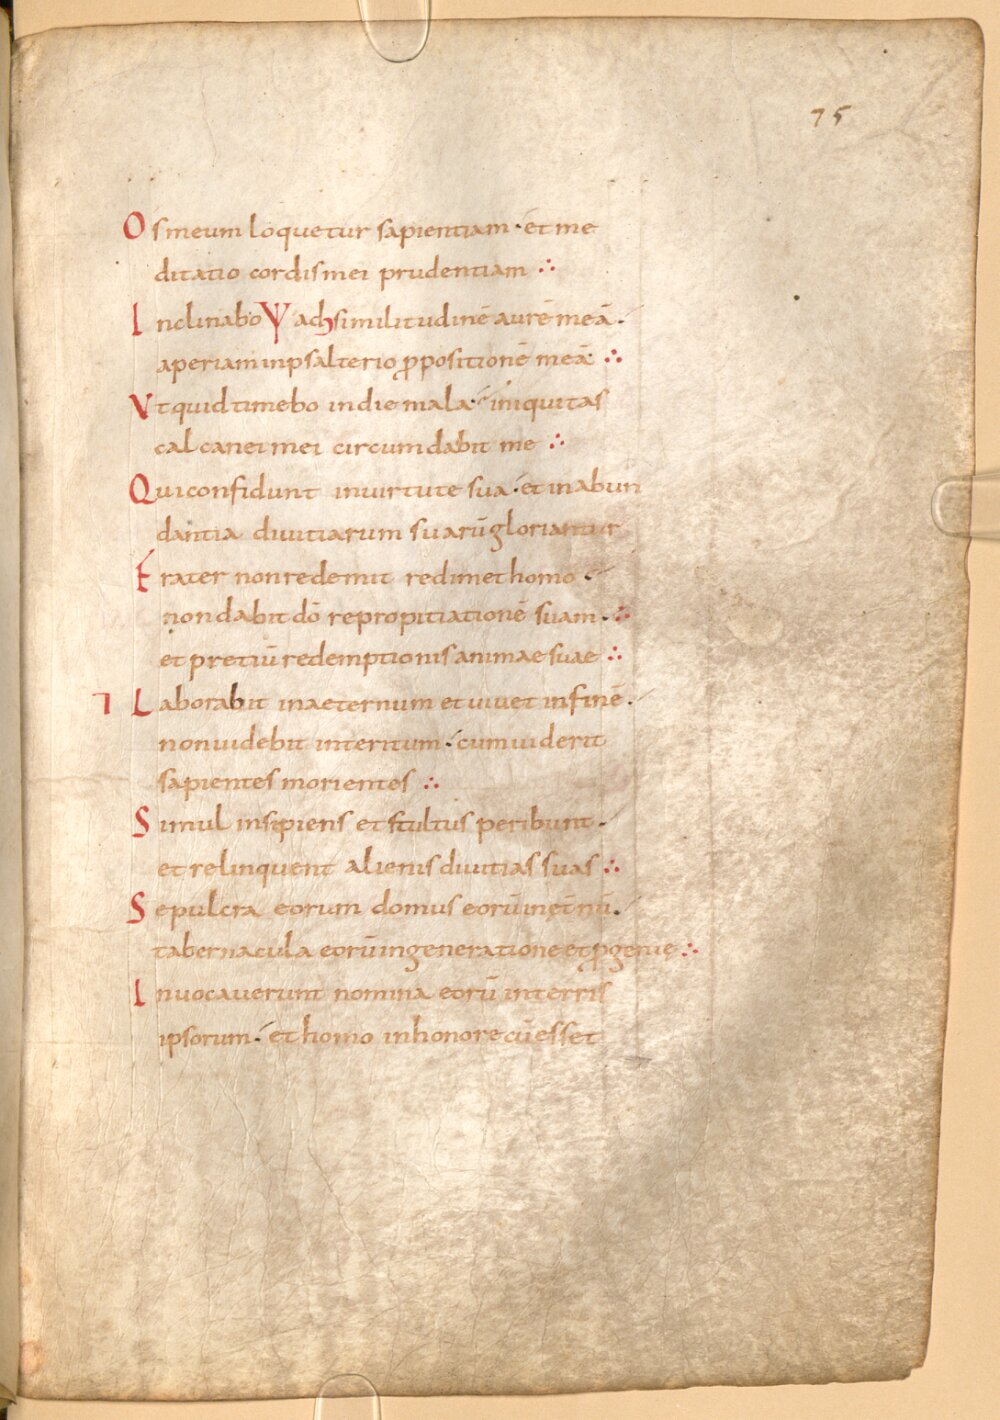 75
Os meum loquetur sapientiam · et me
ditatio cordis mei prudentiam ∴
Inclinabo Ψ ad similitudinē aurē meā ·
aperiam in psalterio ꝓpositionē meā ∴
Vt quid timebo in die mala · iniquitas
calcanei mei circumdabit me ∴
Qui confidunt in uirtute sua · et in abun
dantia diuitiarum suarū gloriantur
Frater non redemit redimet homo ·
non dabit dō repropitiationē suam · ∴
et pretiū redemptionis animae suae ∴
⁊ Laborabit in aeternum et uiuet in finē ·
non uidebit interitum · cum uiderit
sapientes morientes ∴
Simul insipiens et stultus peribunt ·
et relinquent alienis diuitias suas ∴
Sepulcra eorum domus eorū in ętnū ·
tabernacula eorū in generatione et ꝓgenie ∴
Inuocauerunt nomina eorū in terris
ipsorum · et homo in honore cū esset